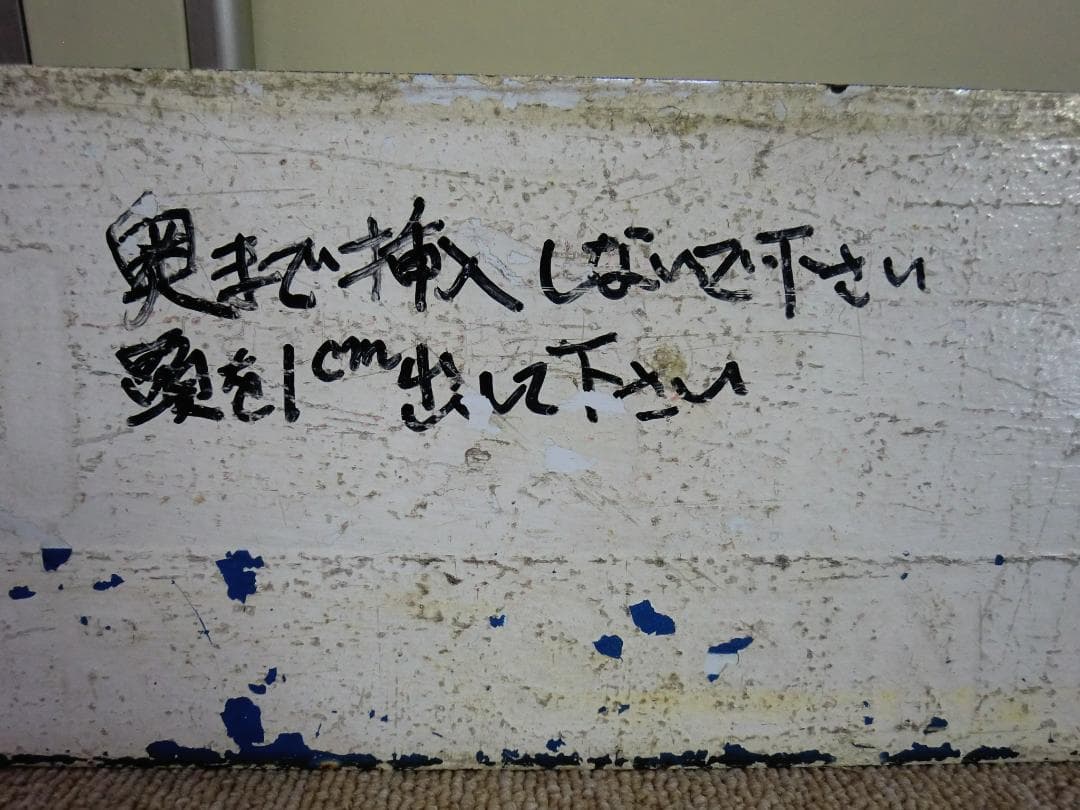 奥まで挿入しないで下さい
を1cm出して下さい